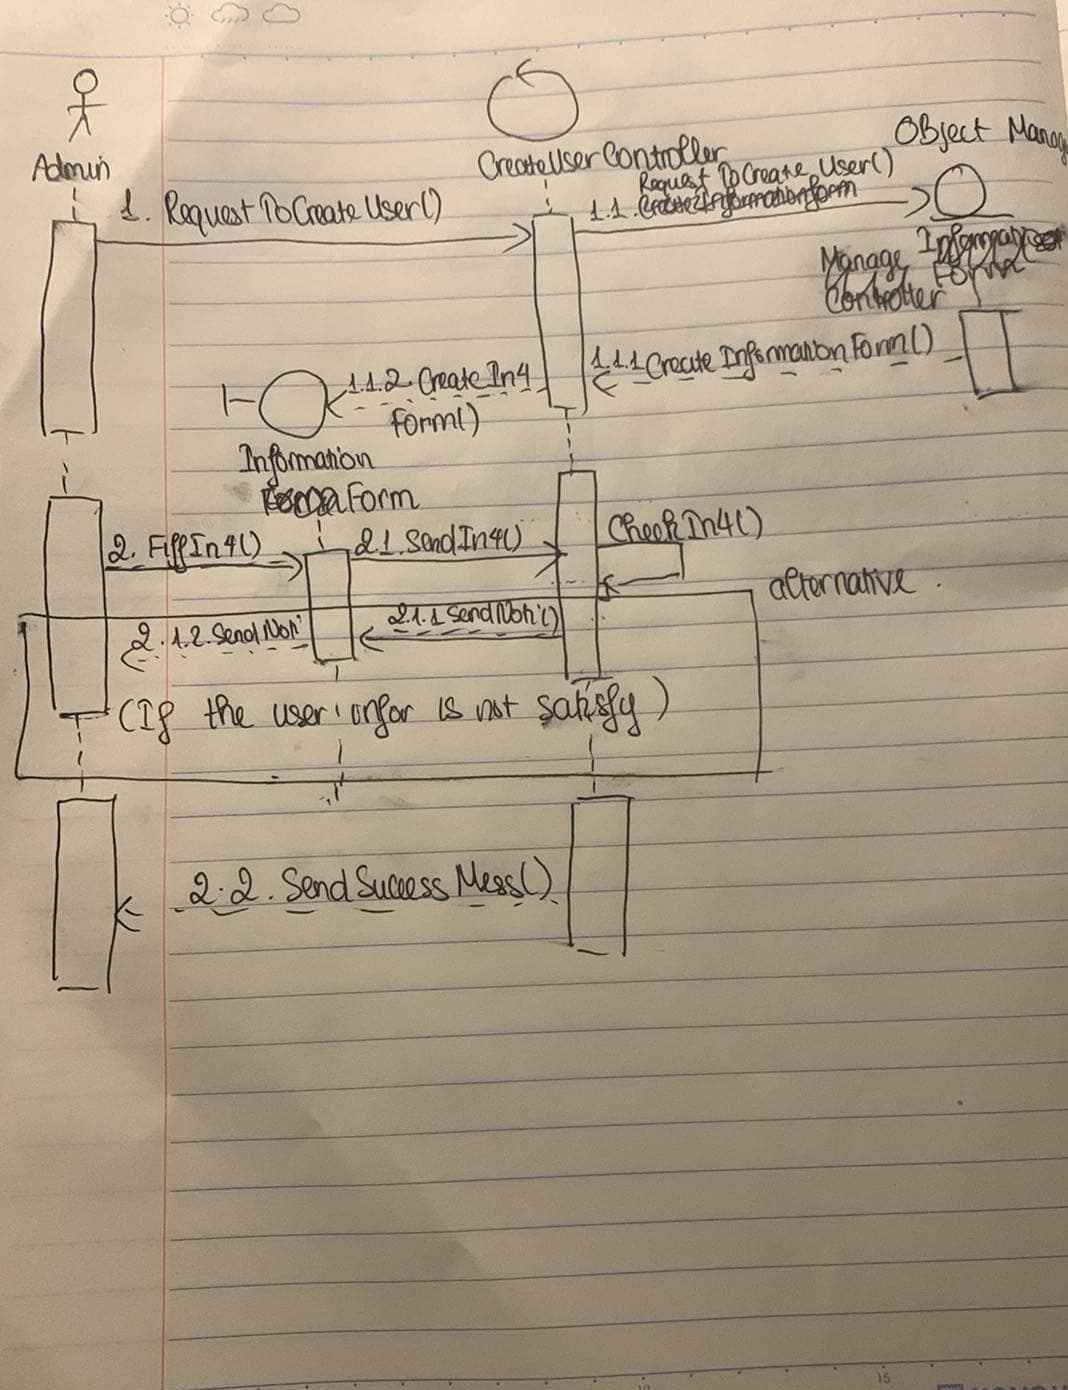 Object Manag
Admin
CreateUserController
1. RequestToCreateUser()
Request ToCreate User()
1.1.
Manage
Controller
1.1.1 Create InformationForm()
1.1.2. Create In4
Form()
Information
Form
2. FillIn4()
2.1. SendIn4()
CheckIn4()
alternative
2.1.1 SendNoti()
2.1.2. SendNoti
(If the user infor is not satisfy)
2.2. SendSuccessMess()
15